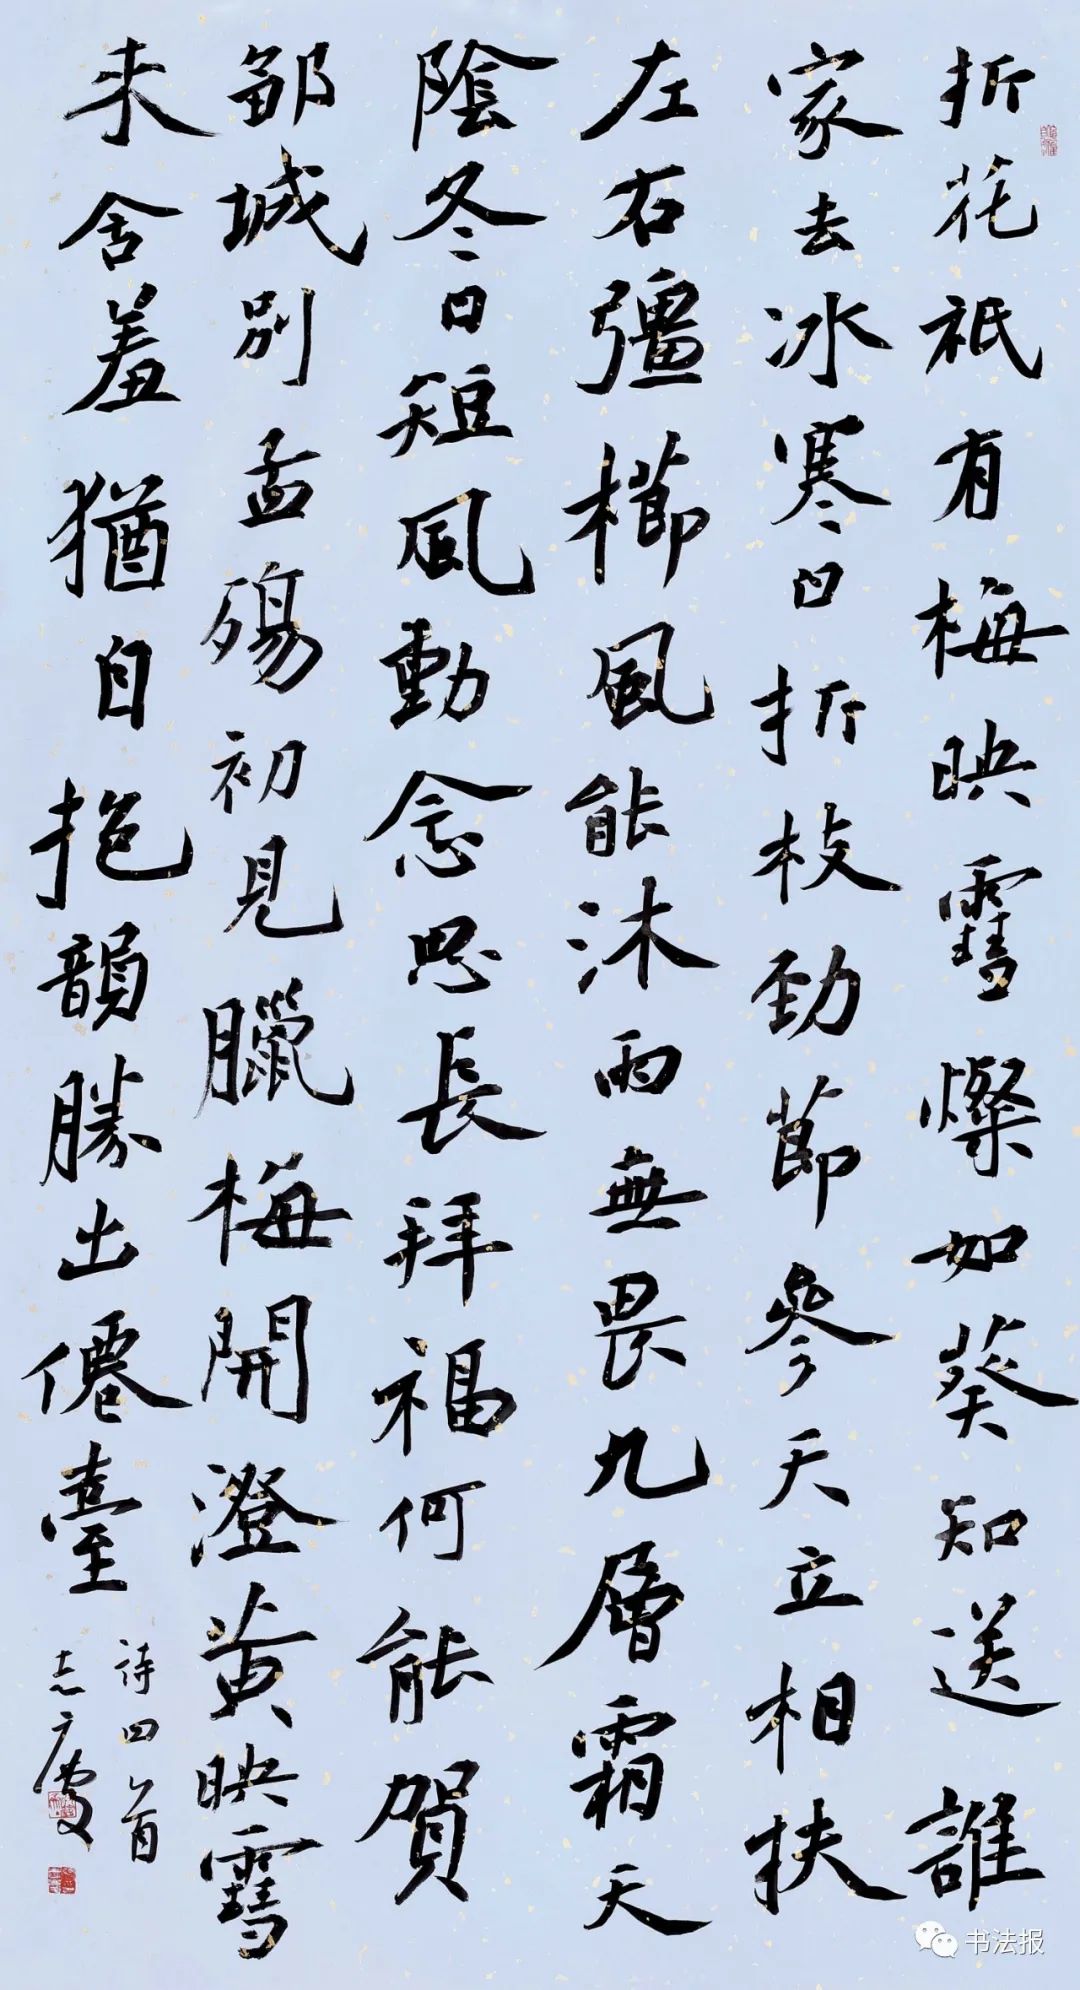 折花祇有梅映雪燦如葵知送誰
家去冰寒日折枝勁節參天立相扶
左右彊櫛風能沐雨無畏九層霜天
陰冬日短風動念思長拜福何能賀
鄒城別孟殤初見臘梅開澄黃映雪
來含羞猶自抱韻勝出僊臺
詩四首
志慶
书法报